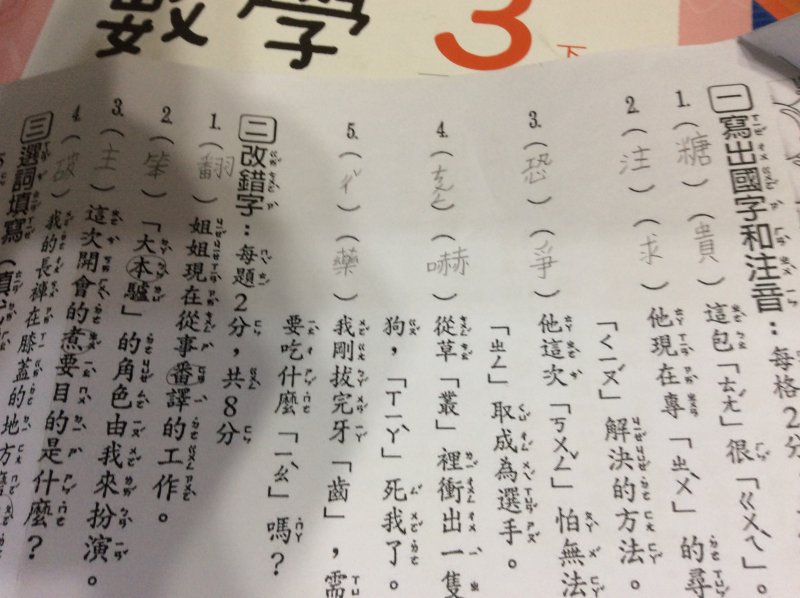 數學 3 下
一 寫出國字和注音：每格2分
1.（糖）（貴）這包「ㄊㄤˊ」很「ㄍㄨㄟˋ」。
2.（注）（求）他現在專「ㄓㄨˋ」的尋
「ㄑㄧㄡˊ」解決的方法。
3.（恐）（爭）他這次「ㄎㄨㄥˇ」怕無法
「ㄓㄥ」取成為選手。
4.（ㄘㄨㄥˊ）（嚇）從草「叢」裡衝出一隻
狗，「ㄒㄧㄚˋ」死我了。
5.（ㄔˇ）（藥）我剛拔完牙「齒」，需
要吃什麼「ㄧㄠˋ」嗎？
二 改錯字：每題2分，共8分
1.（翻）姐姐現在從事番譯的工作。
2.（笨）「大本驢」的角色由我來扮演。
3.（主）這次開會的煮要目的是什麼？
4.（破）我的長褲在膝蓋的地方
三 選詞填寫